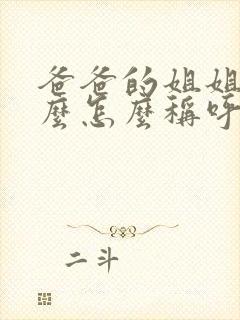 爸爸的姐姐
麼怎麼稱呼
二斗